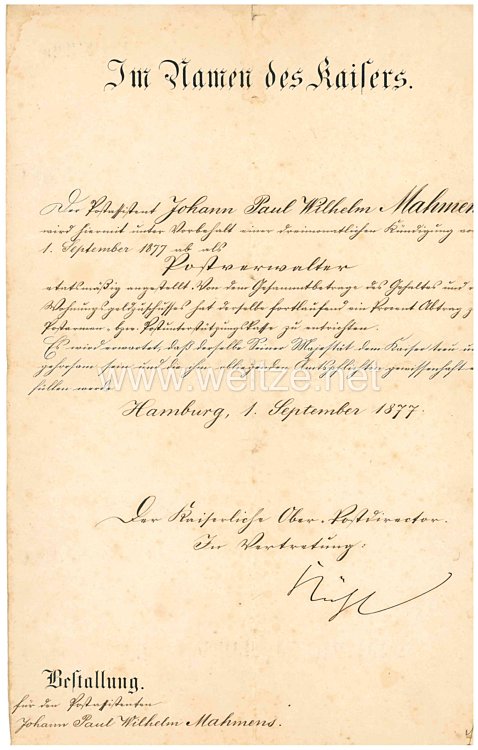 Im Namen des Kaisers.
Der Postassistent Johann Paul Wilhelm Mahmens
wird hiermit unter Vorbehalt einer dreimonatlicher Kündigung vom
1. September 1877 ab als
Postverwalter
etatsmäßig angestellt. Von dem Gesammtbetrage des Gehaltes und
Wohnungsgeldzuschusses hat derselbe fortlaufend ein Procent Abtrag
Postarmen- bzw. Postunterstützungskasse zu entrichten.
Es wird erwartet, daß derselbe Seiner Majestät dem Kaiser treu
gehorsam sein und die ihm obliegenden Amtspflichten gewissenhaft
füllen werde.
www.weitze.net
Hamburg, 1. September 1877.
Der Kaiserliche Ober-Postdirector.
In Vertretung:
Bestallung.
für den Postassistenten
Johann Paul Wilhelm Mahmens.